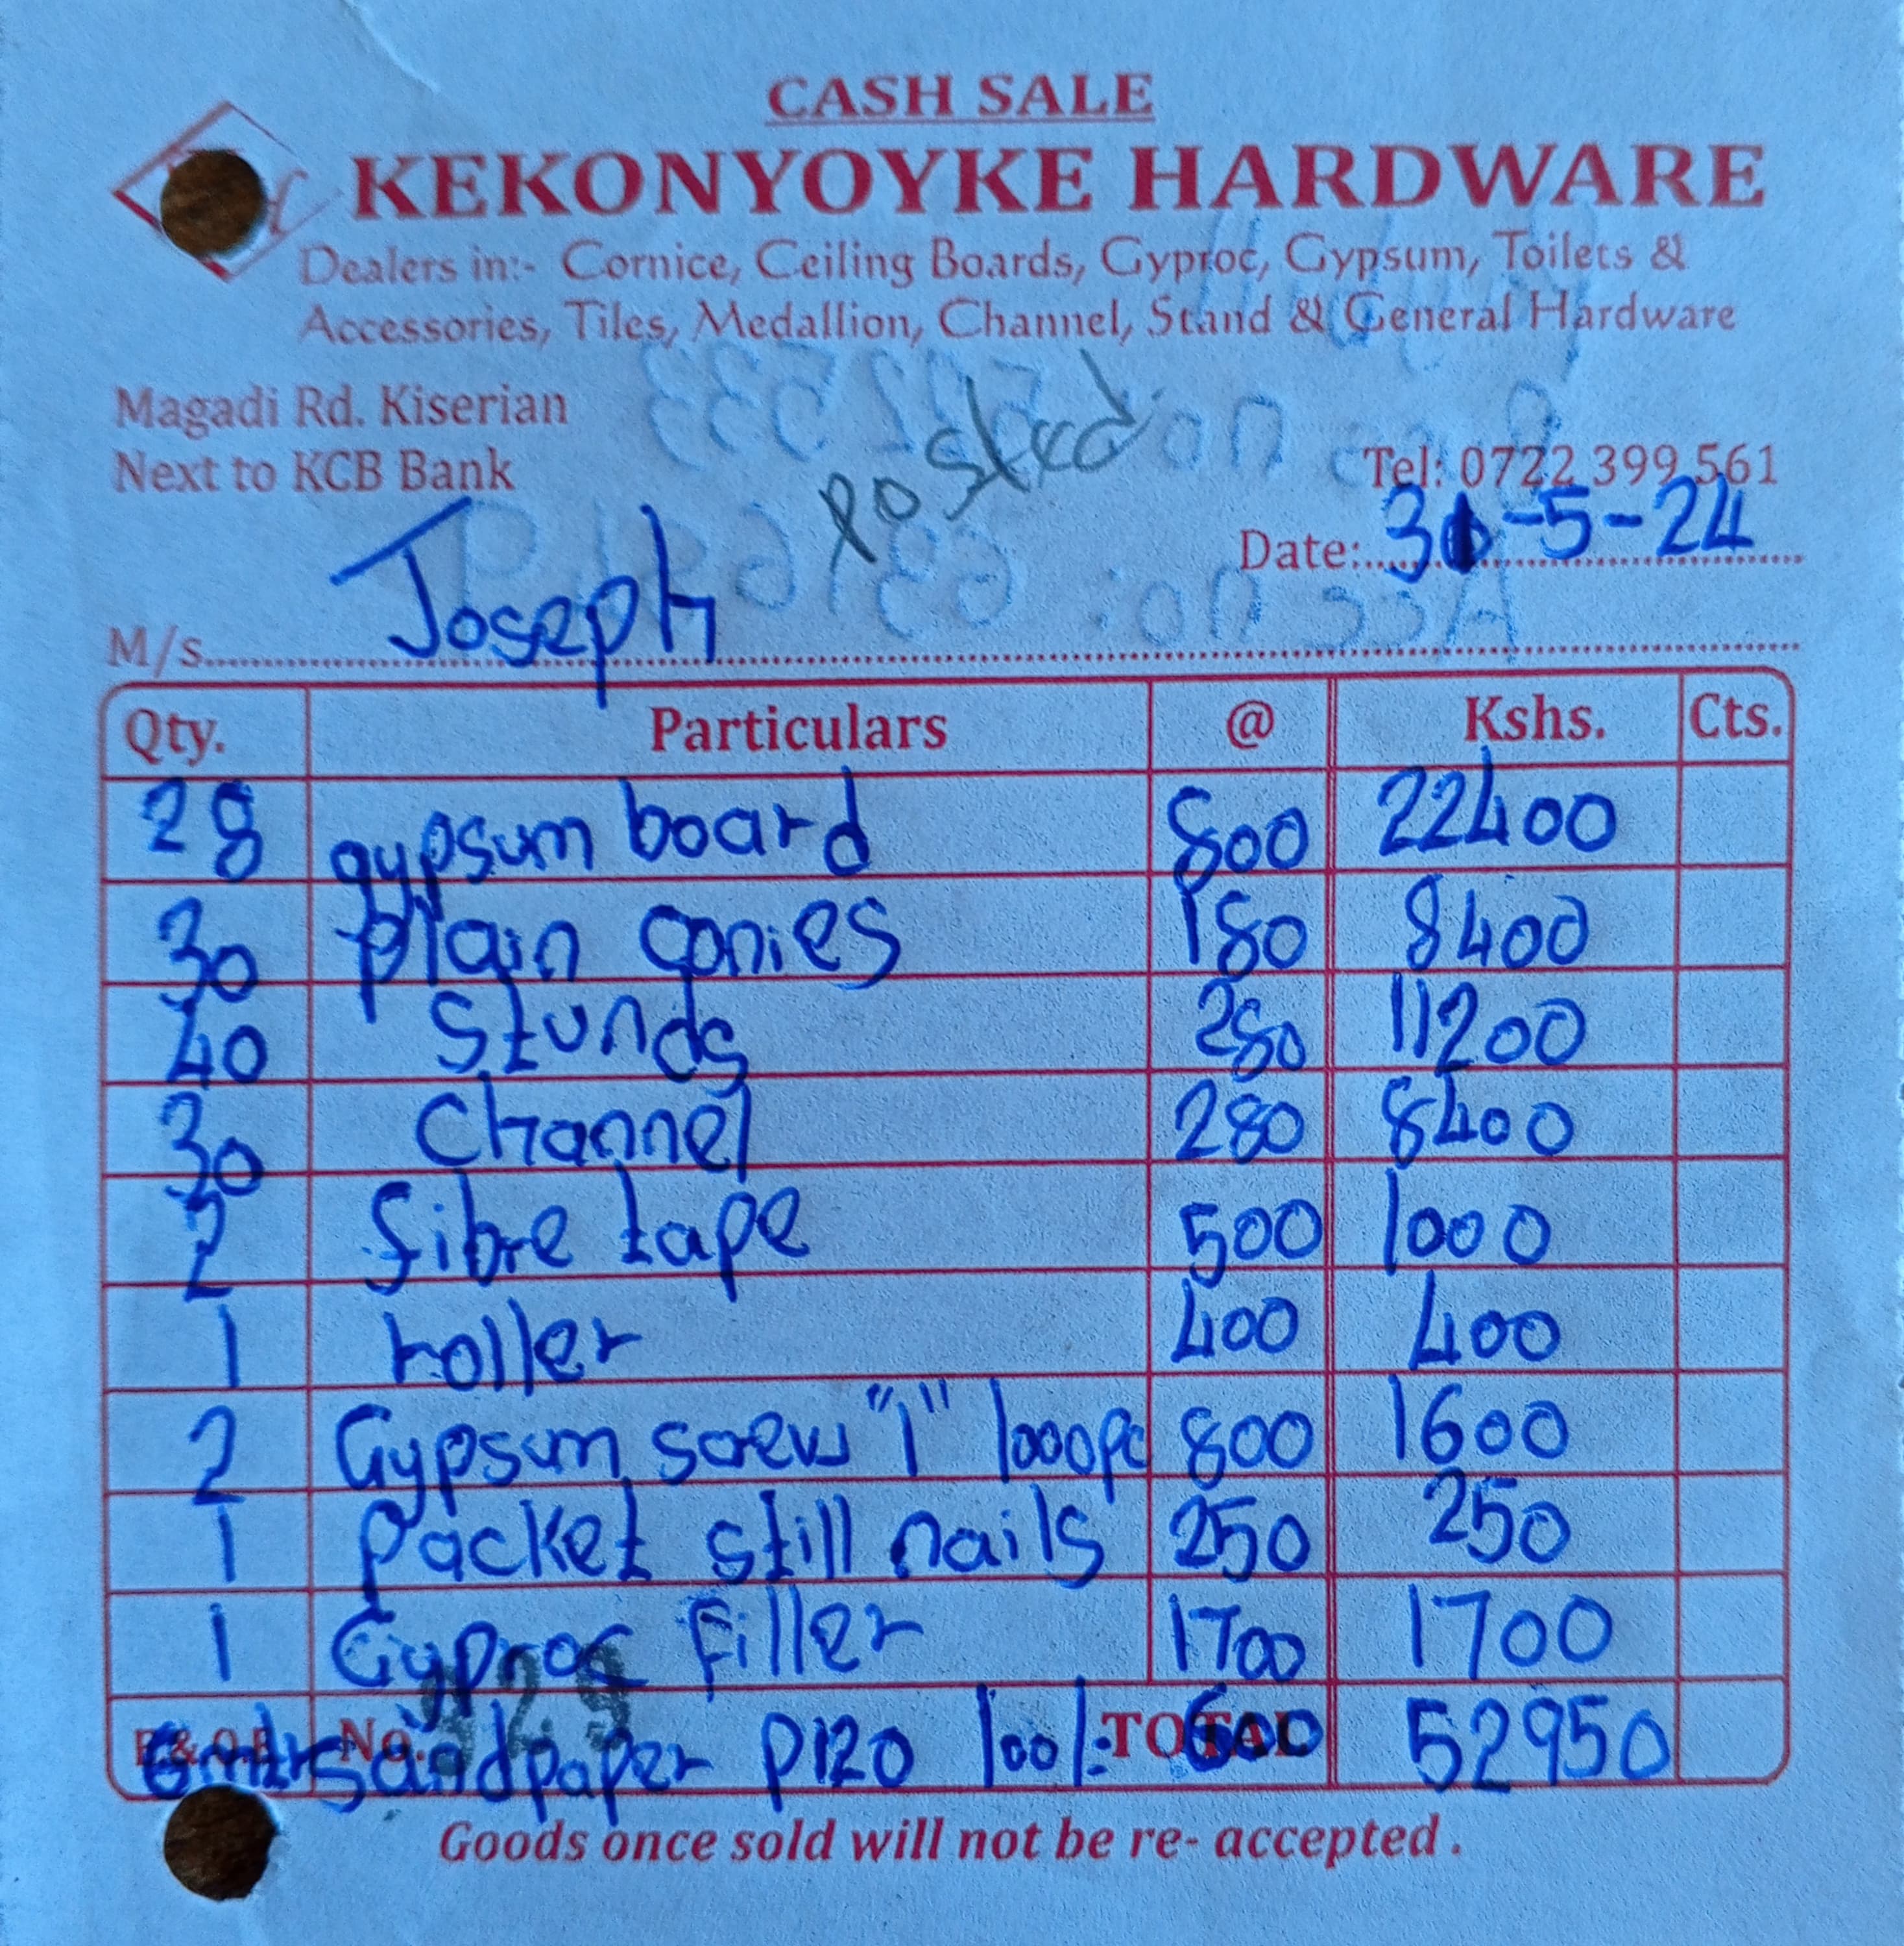 CASH SALE
KEKONYOYKE HARDWARE
Dealers in:- Cornice, Ceiling Boards, Gyproc, Gypsum, Toilets &
Accessories, Tiles, Medallion, Channel, Stand & General Hardware
Magadi Rd. Kiserian
Next to KCB Bank
posted
Tel: 0722 399 561
Date: 31-5-24
M/s. Joseph
Qty. Particulars @ Kshs. Cts.
28 gypsum board 800 22400
30 plain conies 180 8400
40 Stunds 280 11200
30 Channel 280 8400
2 fibre tape 500 1000
1 roller 400 400
2 Gypsum screw "1" 1000pc 800 1600
1 Packet still nails 250 250
1 Gyproc Filler 1700 1700
E.& O.E. No. 329 TOTAL 52950
6mtr sandpaper P120 100/= 600
Goods once sold will not be re- accepted .